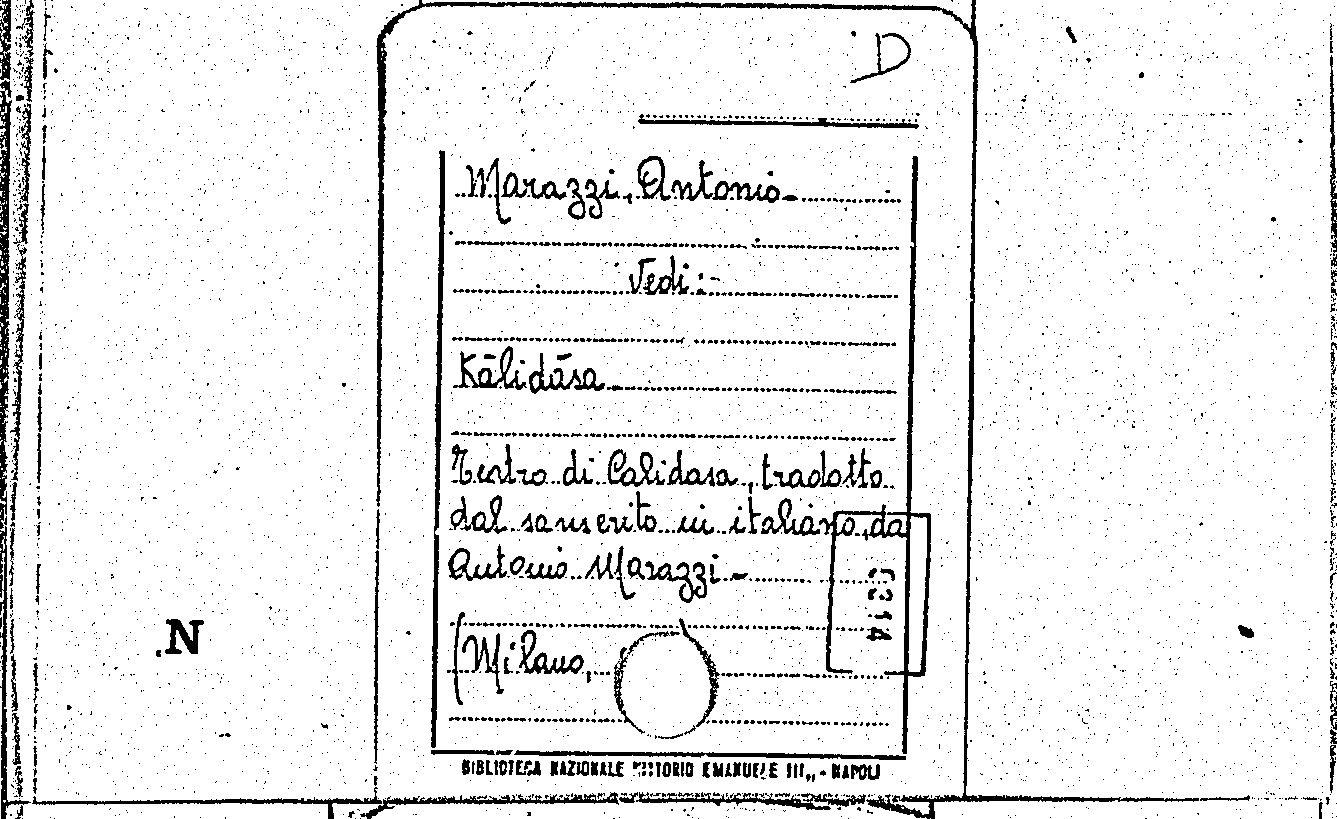 D
Marazzi, Antonio-
Vedi:-
Kālidāsa-
Teatro di Calidasa, tradotto
dal sanscrito in italiano, da
Antonio Marazzi-
(Milano,
N
BIBLIOTECA NAZIONALE VITTORIO EMANUELE III,, - NAPOLI